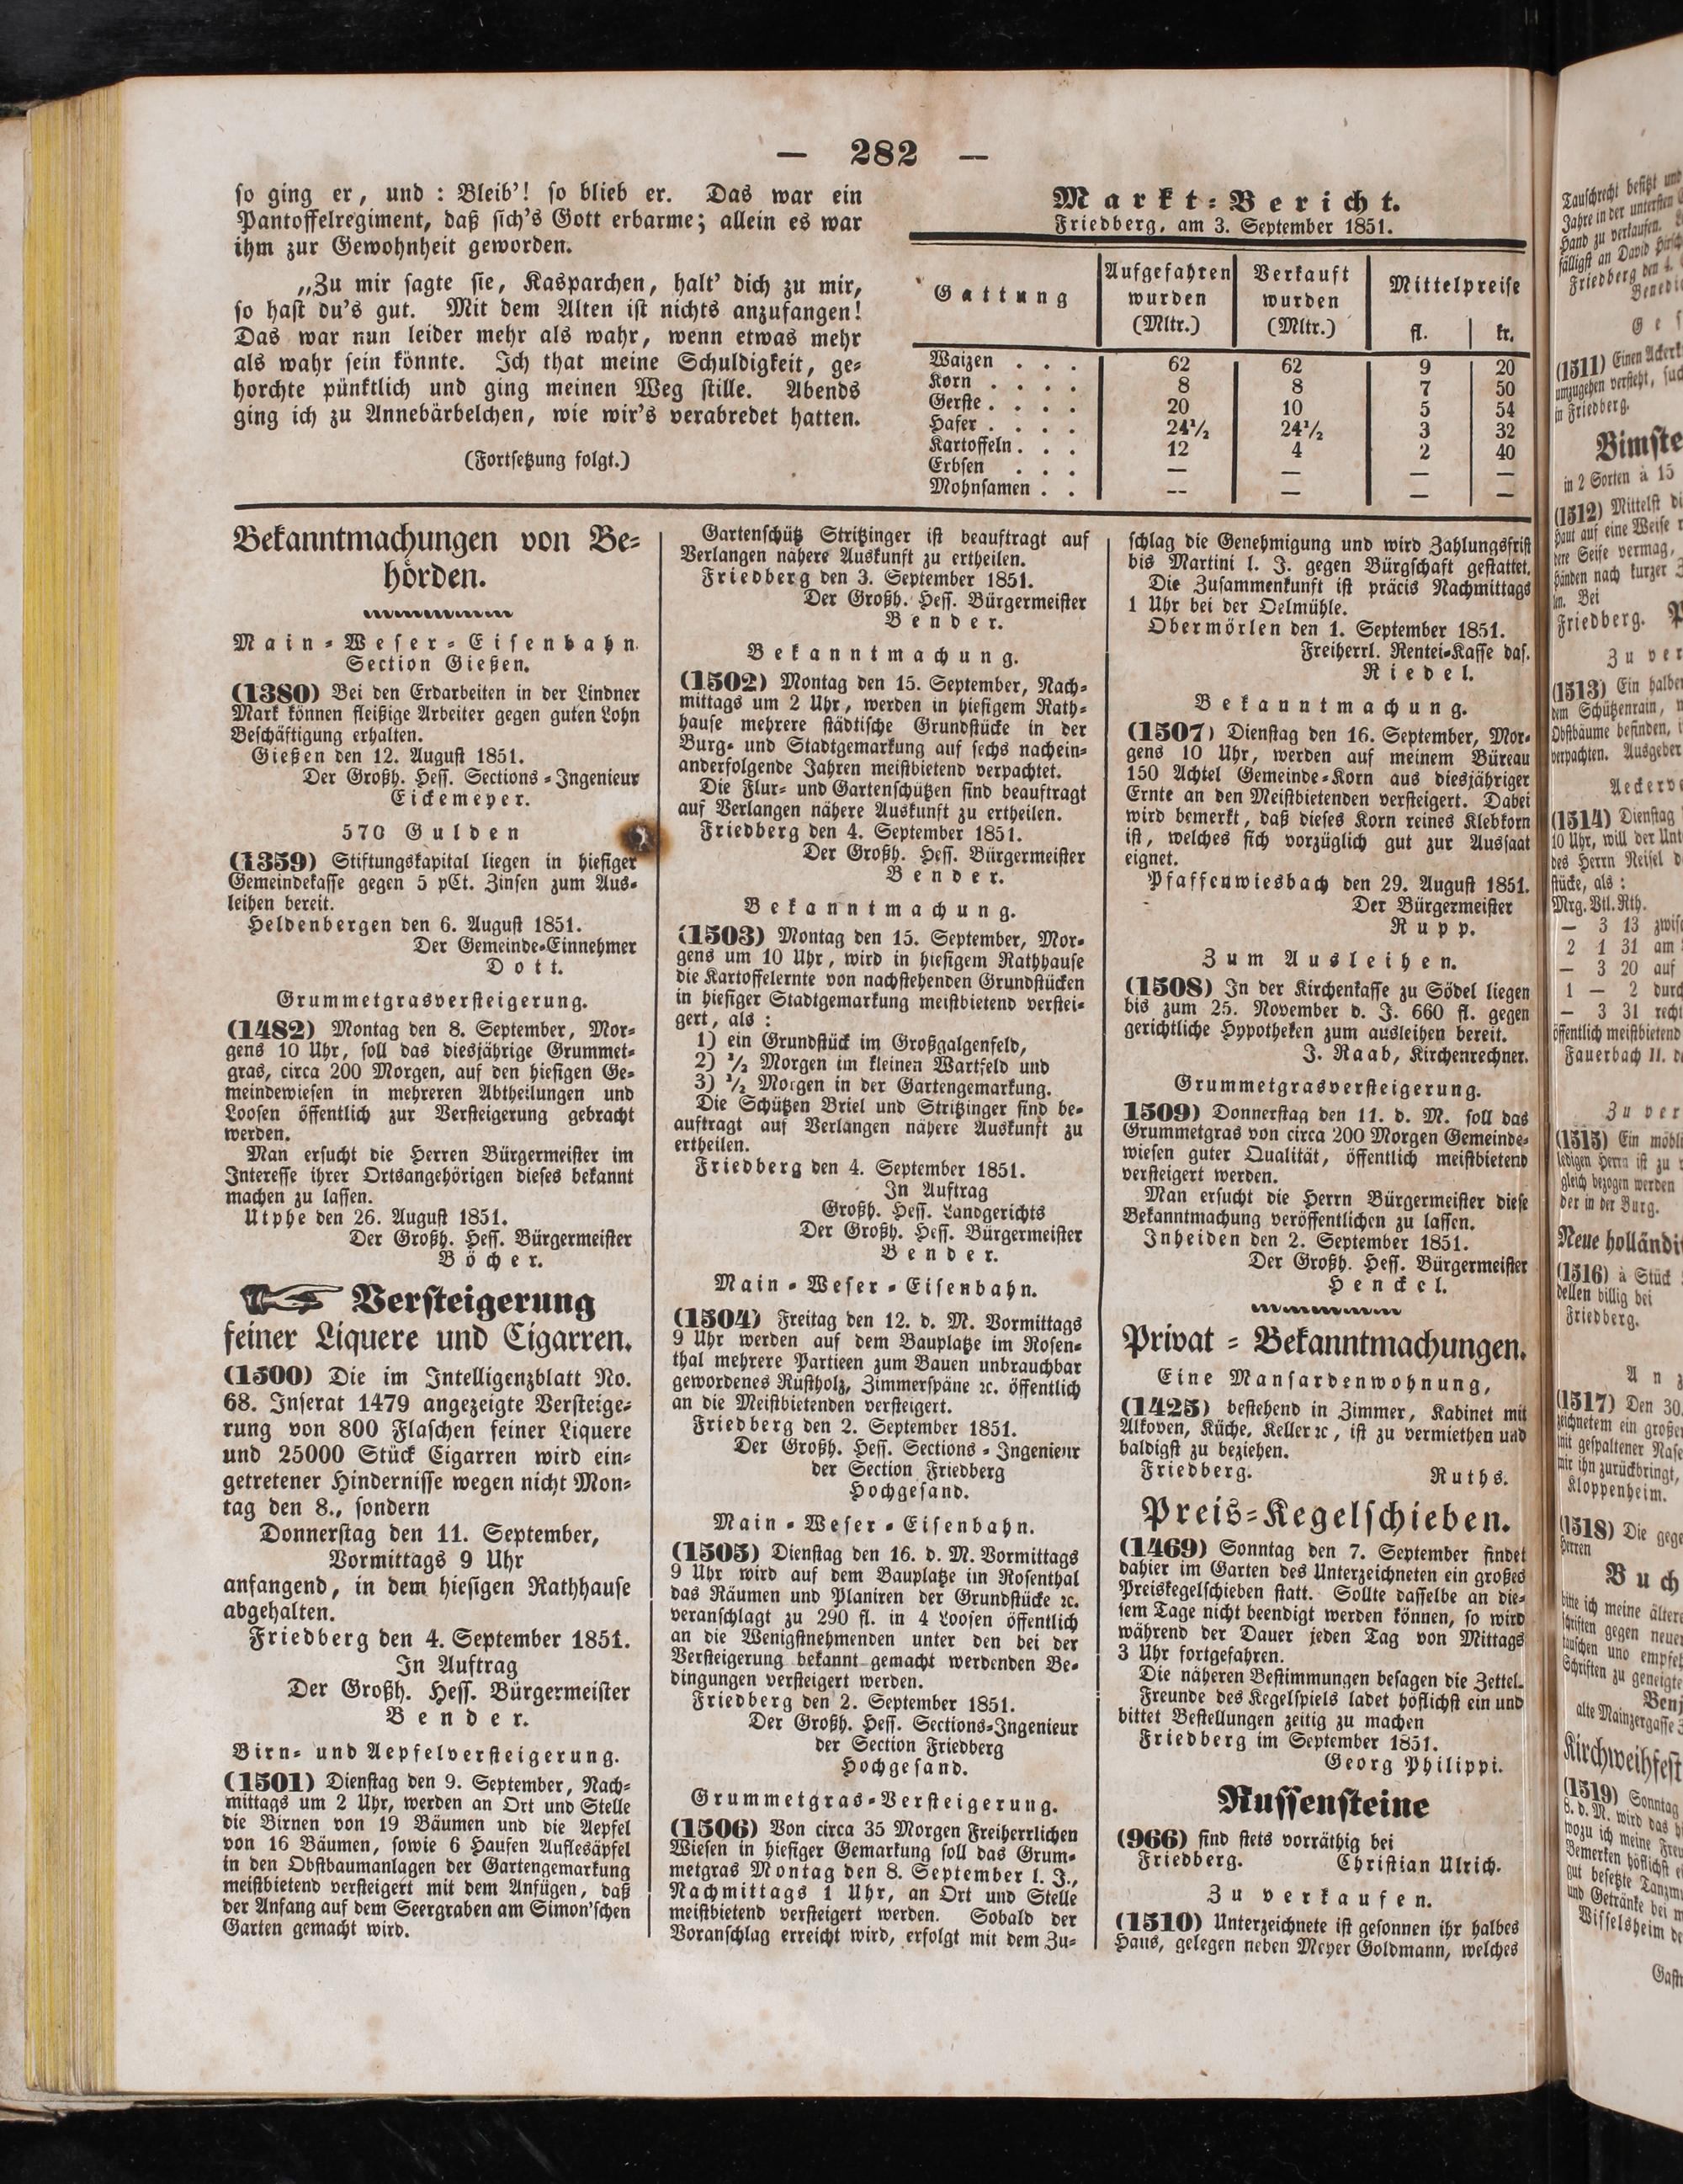 — 282 —
so ging er, und : Bleib'! so blieb er. Das war ein
Pantoffelregiment, daß sich's Gott erbarme; allein es war
ihm zur Gewohnheit geworden.
„Zu mir sagte sie, Kasparchen, halt' dich zu mir,
so hast du's gut. Mit dem Alten ist nichts anzufangen!
Das war nun leider mehr als wahr, wenn etwas mehr
als wahr sein könnte. Ich that meine Schuldigkeit, ge-
horchte pünktlich und ging meinen Weg stille. Abends
ging ich zu Annebärbelchen, wie wir's verabredet hatten.
(Fortsetzung folgt.)
Markt-Bericht.
Friedberg, am 3. September 1851.
Gattung | Aufgefahren wurden (Mltr.) | Verkauft wurden (Mltr.) | Mittelpreise fl. | kr.
Waizen . . . 62 62 9 20
Korn . . . . 8 8 7 50
Gerste . . . . 20 10 5 54
Hafer . . . . 24½ 24½ 3 32
Kartoffeln . . . 12 4 2 40
Erbsen . . . — — — —
Mohnsamen . . -- — — —
Bekanntmachungen von Be-
hörden.
Main-Weser-Eisenbahn.
Section Gießen.
(1380) Bei den Erdarbeiten in der Lindner
Mark können fleißige Arbeiter gegen guten Lohn
Beschäftigung erhalten.
Gießen den 12. August 1851.
Der Großh. Hess. Sections-Ingenieur
Eickemeyer.
570 Gulden
(1359) Stiftungskapital liegen in hiesiger
Gemeindekasse gegen 5 pCt. Zinsen zum Aus-
leihen bereit.
Heldenbergen den 6. August 1851.
Der Gemeinde-Einnehmer
Dott.
Grummetgrasversteigerung.
(1482) Montag den 8. September, Mor-
gens 10 Uhr, soll das diesjährige Grummet-
gras, circa 200 Morgen, auf den hiesigen Ge-
meindewiesen in mehreren Abtheilungen und
Loosen öffentlich zur Versteigerung gebracht
werden.
Man ersucht die Herren Bürgermeister im
Interesse ihrer Ortsangehörigen dieses bekannt
machen zu lassen.
Utphe den 26. August 1851.
Der Großh. Hess. Bürgermeister
Böcher.
Versteigerung
feiner Liquere und Cigarren.
(1500) Die im Intelligenzblatt No.
68. Inserat 1479 angezeigte Versteige-
rung von 800 Flaschen feiner Liquere
und 25000 Stück Cigarren wird ein-
getretener Hindernisse wegen nicht Mon-
tag den 8., sondern
Donnerstag den 11. September,
Vormittags 9 Uhr
anfangend, in dem hiesigen Rathhause
abgehalten.
Friedberg den 4. September 1851.
In Auftrag
Der Großh. Hess. Bürgermeister
Bender.
Birn- und Aepfelversteigerung.
(1501) Dienstag den 9. September, Nach-
mittags um 2 Uhr, werden an Ort und Stelle
die Birnen von 19 Bäumen und die Aepfel
von 16 Bäumen, sowie 6 Haufen Auflesäpfel
in den Obstbaumanlagen der Gartengemarkung
meistbietend versteigert mit dem Anfügen, daß
der Anfang auf dem Seergraben am Simon'schen
Garten gemacht wird.
Gartenschütz Stritzinger ist beauftragt auf
Verlangen nähere Auskunft zu ertheilen.
Friedberg den 3. September 1851.
Der Großh. Hess. Bürgermeister
Bender.
Bekanntmachung.
(1502) Montag den 15. September, Nach-
mittags um 2 Uhr, werden in hiesigem Rath-
hause mehrere städtische Grundstücke in der
Burg- und Stadtgemarkung auf sechs nachein-
anderfolgende Jahren meistbietend verpachtet.
Die Flur- und Gartenschützen sind beauftragt
auf Verlangen nähere Auskunft zu ertheilen.
Friedberg den 4. September 1851.
Der Großh. Hess. Bürgermeister
Bender.
Bekanntmachung.
(1503) Montag den 15. September, Mor-
gens um 10 Uhr, wird in hiesigem Rathhause
die Kartoffelernte von nachstehenden Grundstücken
in hiesiger Stadtgemarkung meistbietend verstei-
gert, als :
1) ein Grundstück im Großgalgenfeld,
2) ½ Morgen im kleinen Wartfeld und
3) ½ Morgen in der Gartengemarkung.
Die Schützen Briel und Stritzinger sind be-
auftragt auf Verlangen nähere Auskunft zu
ertheilen.
Friedberg den 4. September 1851.
In Auftrag
Großh. Hess. Landgerichts
Der Großh. Hess. Bürgermeister
Bender.
Main-Weser-Eisenbahn.
(1504) Freitag den 12. d. M. Vormittags
9 Uhr werden auf dem Bauplatze im Rosen-
thal mehrere Partieen zum Bauen unbrauchbar
gewordenes Rüstholz, Zimmerspäne ꝛc. öffentlich
an die Meistbietenden versteigert.
Friedberg den 2. September 1851.
Der Großh. Hess. Sections-Ingenieur
der Section Friedberg
Hochgesand.
Main-Weser-Eisenbahn.
(1505) Dienstag den 16. d. M. Vormittags
9 Uhr wird auf dem Bauplatze im Rosenthal
das Räumen und Planiren der Grundstücke ꝛc.
veranschlagt zu 290 fl. in 4 Loosen öffentlich
an die Wenigstnehmenden unter den bei der
Versteigerung bekannt gemacht werdenden Be-
dingungen versteigert werden.
Friedberg den 2. September 1851.
Der Großh. Hess. Sections-Ingenieur
der Section Friedberg
Hochgesand.
Grummetgras-Versteigerung.
(1506) Von circa 35 Morgen Freiherrlichen
Wiesen in hiesiger Gemarkung soll das Grum-
metgras Montag den 8. September l. J.,
Nachmittags 1 Uhr, an Ort und Stelle
meistbietend versteigert werden. Sobald der
Voranschlag erreicht wird, erfolgt mit dem Zu-
schlag die Genehmigung und wird Zahlungsfrist
bis Martini l. J. gegen Bürgschaft gestattet.
Die Zusammenkunft ist präcis Nachmittags
1 Uhr bei der Oelmühle.
Obermörlen den 1. September 1851.
Freiherrl. Rentei-Kasse das.
Riedel.
Bekanntmachung.
(1507) Dienstag den 16. September, Mor-
gens 10 Uhr, werden auf meinem Büreau
150 Achtel Gemeinde-Korn aus diesjähriger
Ernte an den Meistbietenden versteigert. Dabei
wird bemerkt, daß dieses Korn reines Klebkorn
ist, welches sich vorzüglich gut zur Aussaat
eignet.
Pfaffenwiesbach den 29. August 1851.
Der Bürgermeister
Rupp.
Zum Ausleihen.
(1508) In der Kirchenkasse zu Södel liegen
bis zum 25. November d. J. 660 fl. gegen
gerichtliche Hypotheken zum ausleihen bereit.
J. Raab, Kirchenrechner.
Grummetgrasversteigerung.
1509) Donnerstag den 11. d. M. soll das
Grummetgras von circa 200 Morgen Gemeinde-
wiesen guter Qualität, öffentlich meistbietend
versteigert werden.
Man ersucht die Herrn Bürgermeister diese
Bekanntmachung veröffentlichen zu lassen.
Inheiden den 2. September 1851.
Der Großh. Hess. Bürgermeister
Henckel.
Privat-Bekanntmachungen.
Eine Mansardenwohnung,
(1425) bestehend in Zimmer, Kabinet mit
Alkoven, Küche, Keller ꝛc, ist zu vermiethen und
baldigst zu beziehen.
Friedberg. Ruths.
Preis-Kegelschieben.
(1469) Sonntag den 7. September findet
dahier im Garten des Unterzeichneten ein großes
Preiskegelschieben statt. Sollte dasselbe an die-
sem Tage nicht beendigt werden können, so wird
während der Dauer jeden Tag von Mittags
3 Uhr fortgefahren.
Die näheren Bestimmungen besagen die Zettel.
Freunde des Kegelspiels ladet höflichst ein und
bittet Bestellungen zeitig zu machen
Friedberg im September 1851.
Georg Philippi.
Russensteine
(966) sind stets vorräthig bei
Friedberg. Christian Ulrich.
Zu verkaufen.
(1510) Unterzeichnete ist gesonnen ihr halbes
Haus, gelegen neben Meyer Goldmann, welches
Tauschrecht besitzt und
Jahre in der untersten
Hand zu verkaufen.
fälligst an David
Friedberg den 4.
(1511) Einen
umzugehen versteht,
in Friedberg.
in 2 Sorten à 15
(1512) Mittelst
haut auf eine Weise
Seife vermag,
Händen nach kurzer
Bei
Friedberg.
(1513) Ein
dem Schützenrain,
Obstbäume befinden,
verpachten.
(1514) Dienstag
10 Uhr, will der
des Herrn Reisel
stücke, als :
Mrg. Vtl. Rth.
— 3 13
2 1 31 am
— 3 20 auf
1 — 2
— 3 31
öffentlich meistbietend
Fauerbach II.
(1515) Ein
ledigen Herrn ist zu
gleich bezogen werden
der in der Burg.
Neue
(1516) à Stück
billig bei
Friedberg.
(1517) Den 30.
ein
mit gespaltener Nase
mir ihn zurückbringt,
Kloppenheim.
(1518) Die
Herren
bitte ich meine
gegen
und
Schriften zu
alte Mainzergasse
(1519) Sonntag
8. d. M. wird das
wozu ich meine
Bemerken höflichst
gut besetzte
und Getränke bei
Wisselsheim